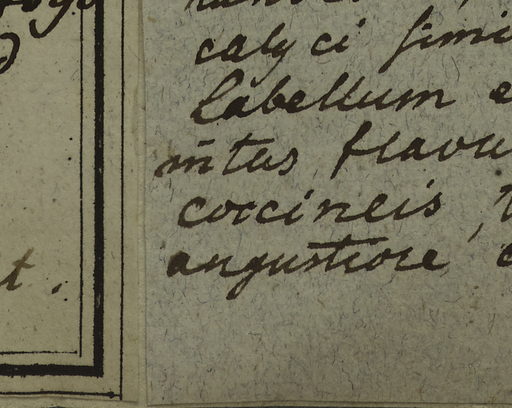 calyci simi
labellum e
intus flavu
coccineis, t
angustiore c
t.